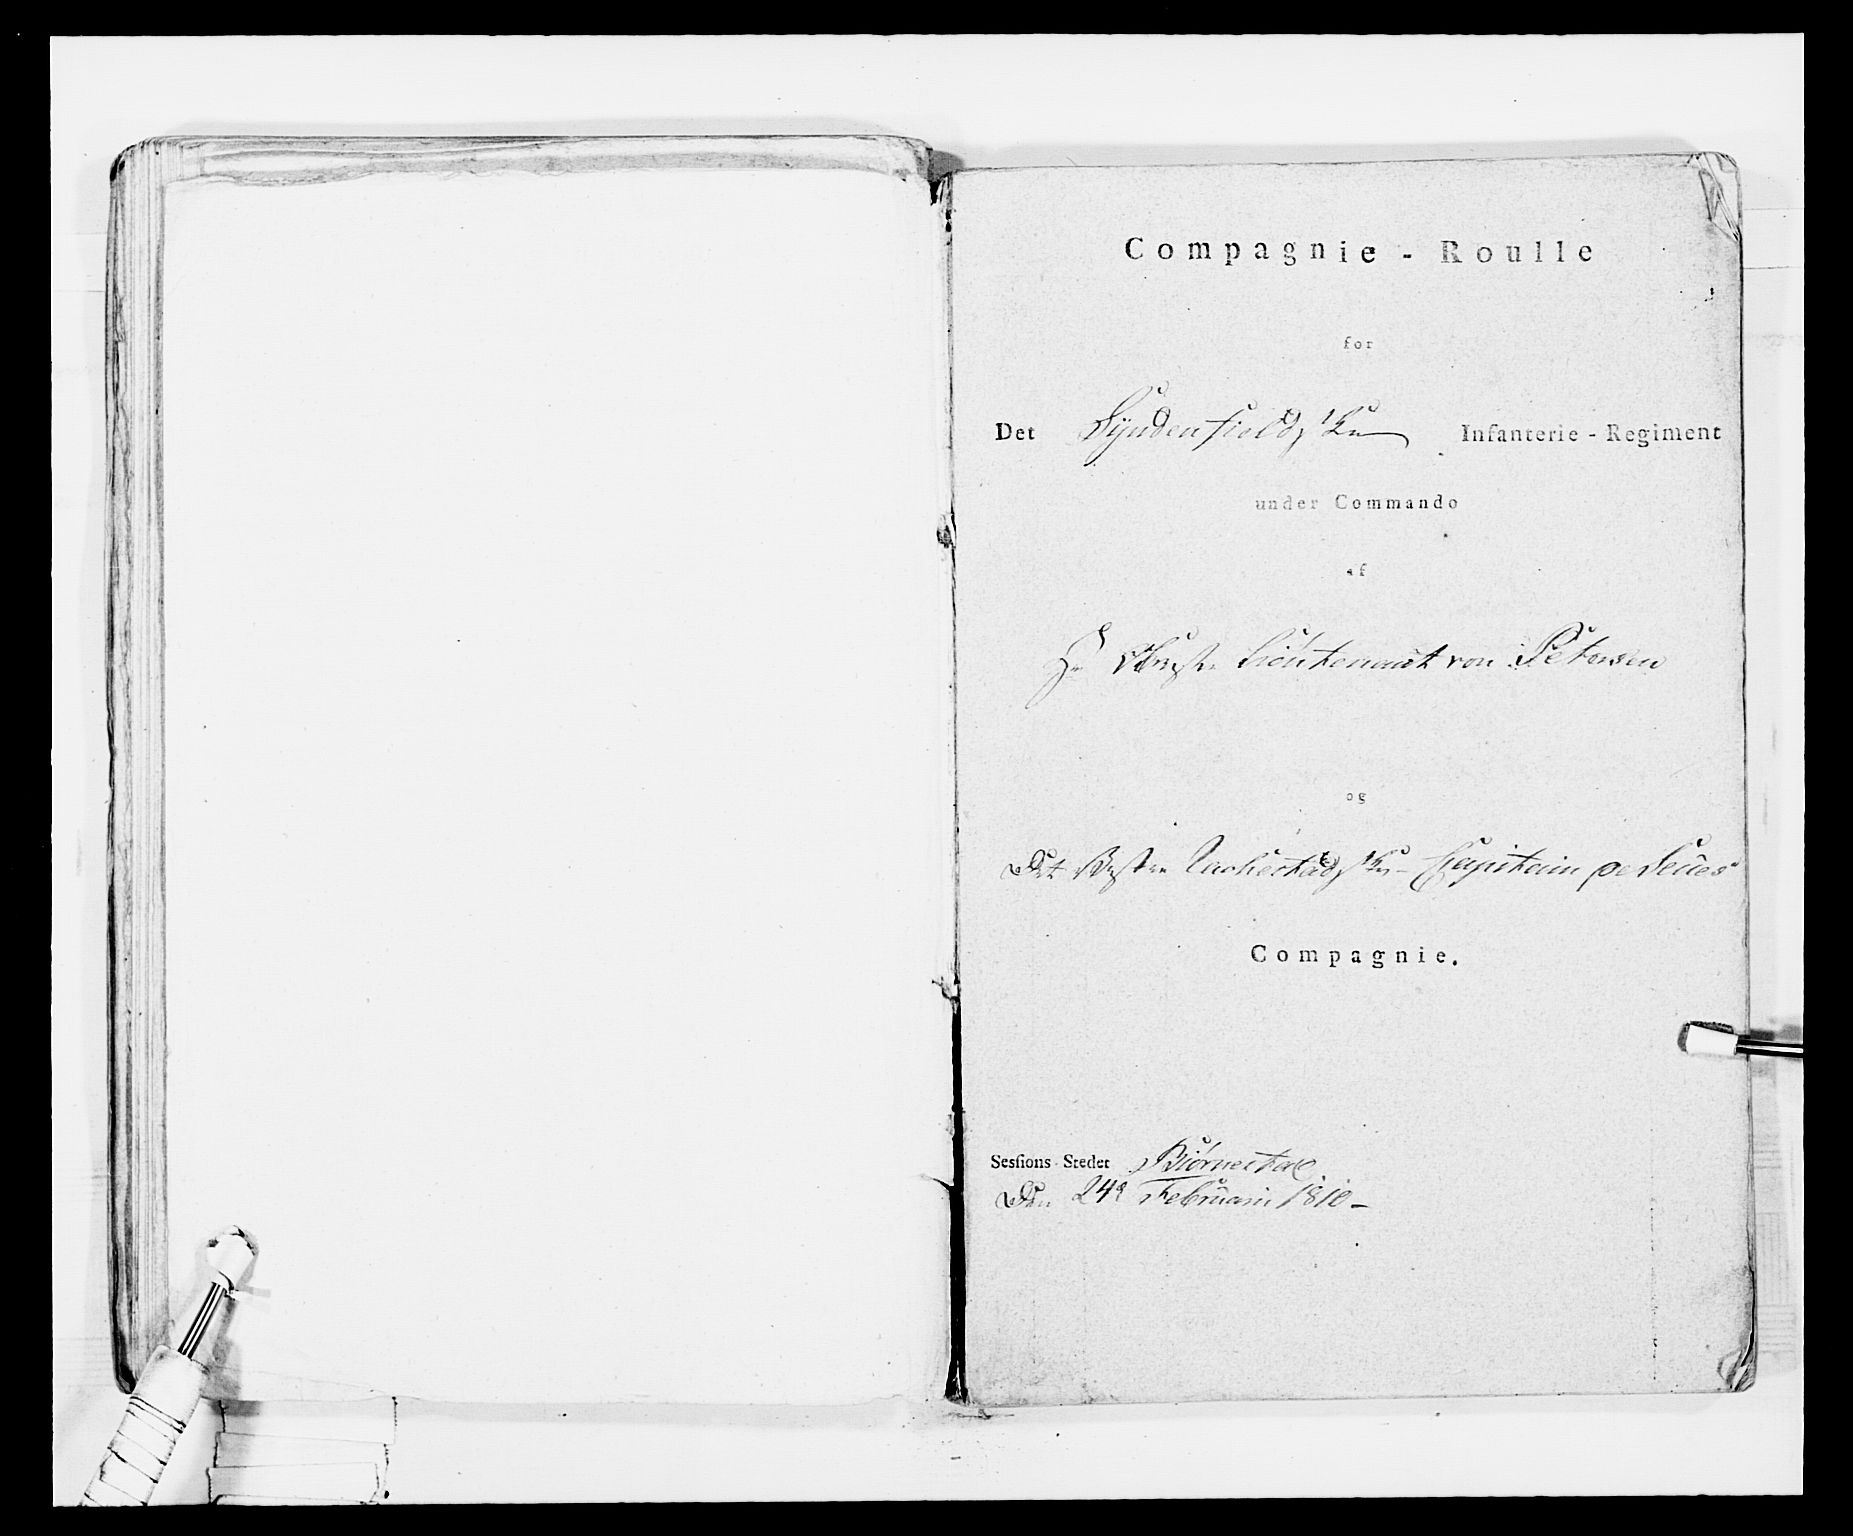 Compagnie - Roulle
for
Det Syndenfieldske Infanterie - Regiment
under Commando
af
Hr Obrste Lieutenant von Petersen
og
Det Vestre Capitain de Seües
Compagnie.
Sessions Stedet Biørnestad
Den 24de Februarii 1810 -